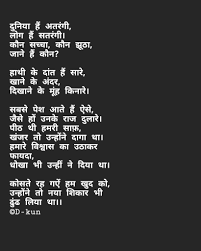 दुनिया हैं अतरंगी,
लोग हैं सतरंगी।
कौन सच्चा, कौन झूठा,
जाने हैं कौन?
हाथी के दांत हैं सारे,
खाने के अंदर,
दिखाने के मूंह किनारे।
सबसे पेश आते हैं ऐसे,
जैसे हों उनके राज दुलारे।
पीठ थी हमरी साफ़,
खंजर तो उन्होंने दागा था।
हमारे विश्वास का उठाकर
फायदा,
धोखा भी उन्हीं ने दिया था।
कोसते रह गऐं हम खुद को,
उन्होंने तो नया शिकार भी
ढुंड लिया था।।
©D-kun